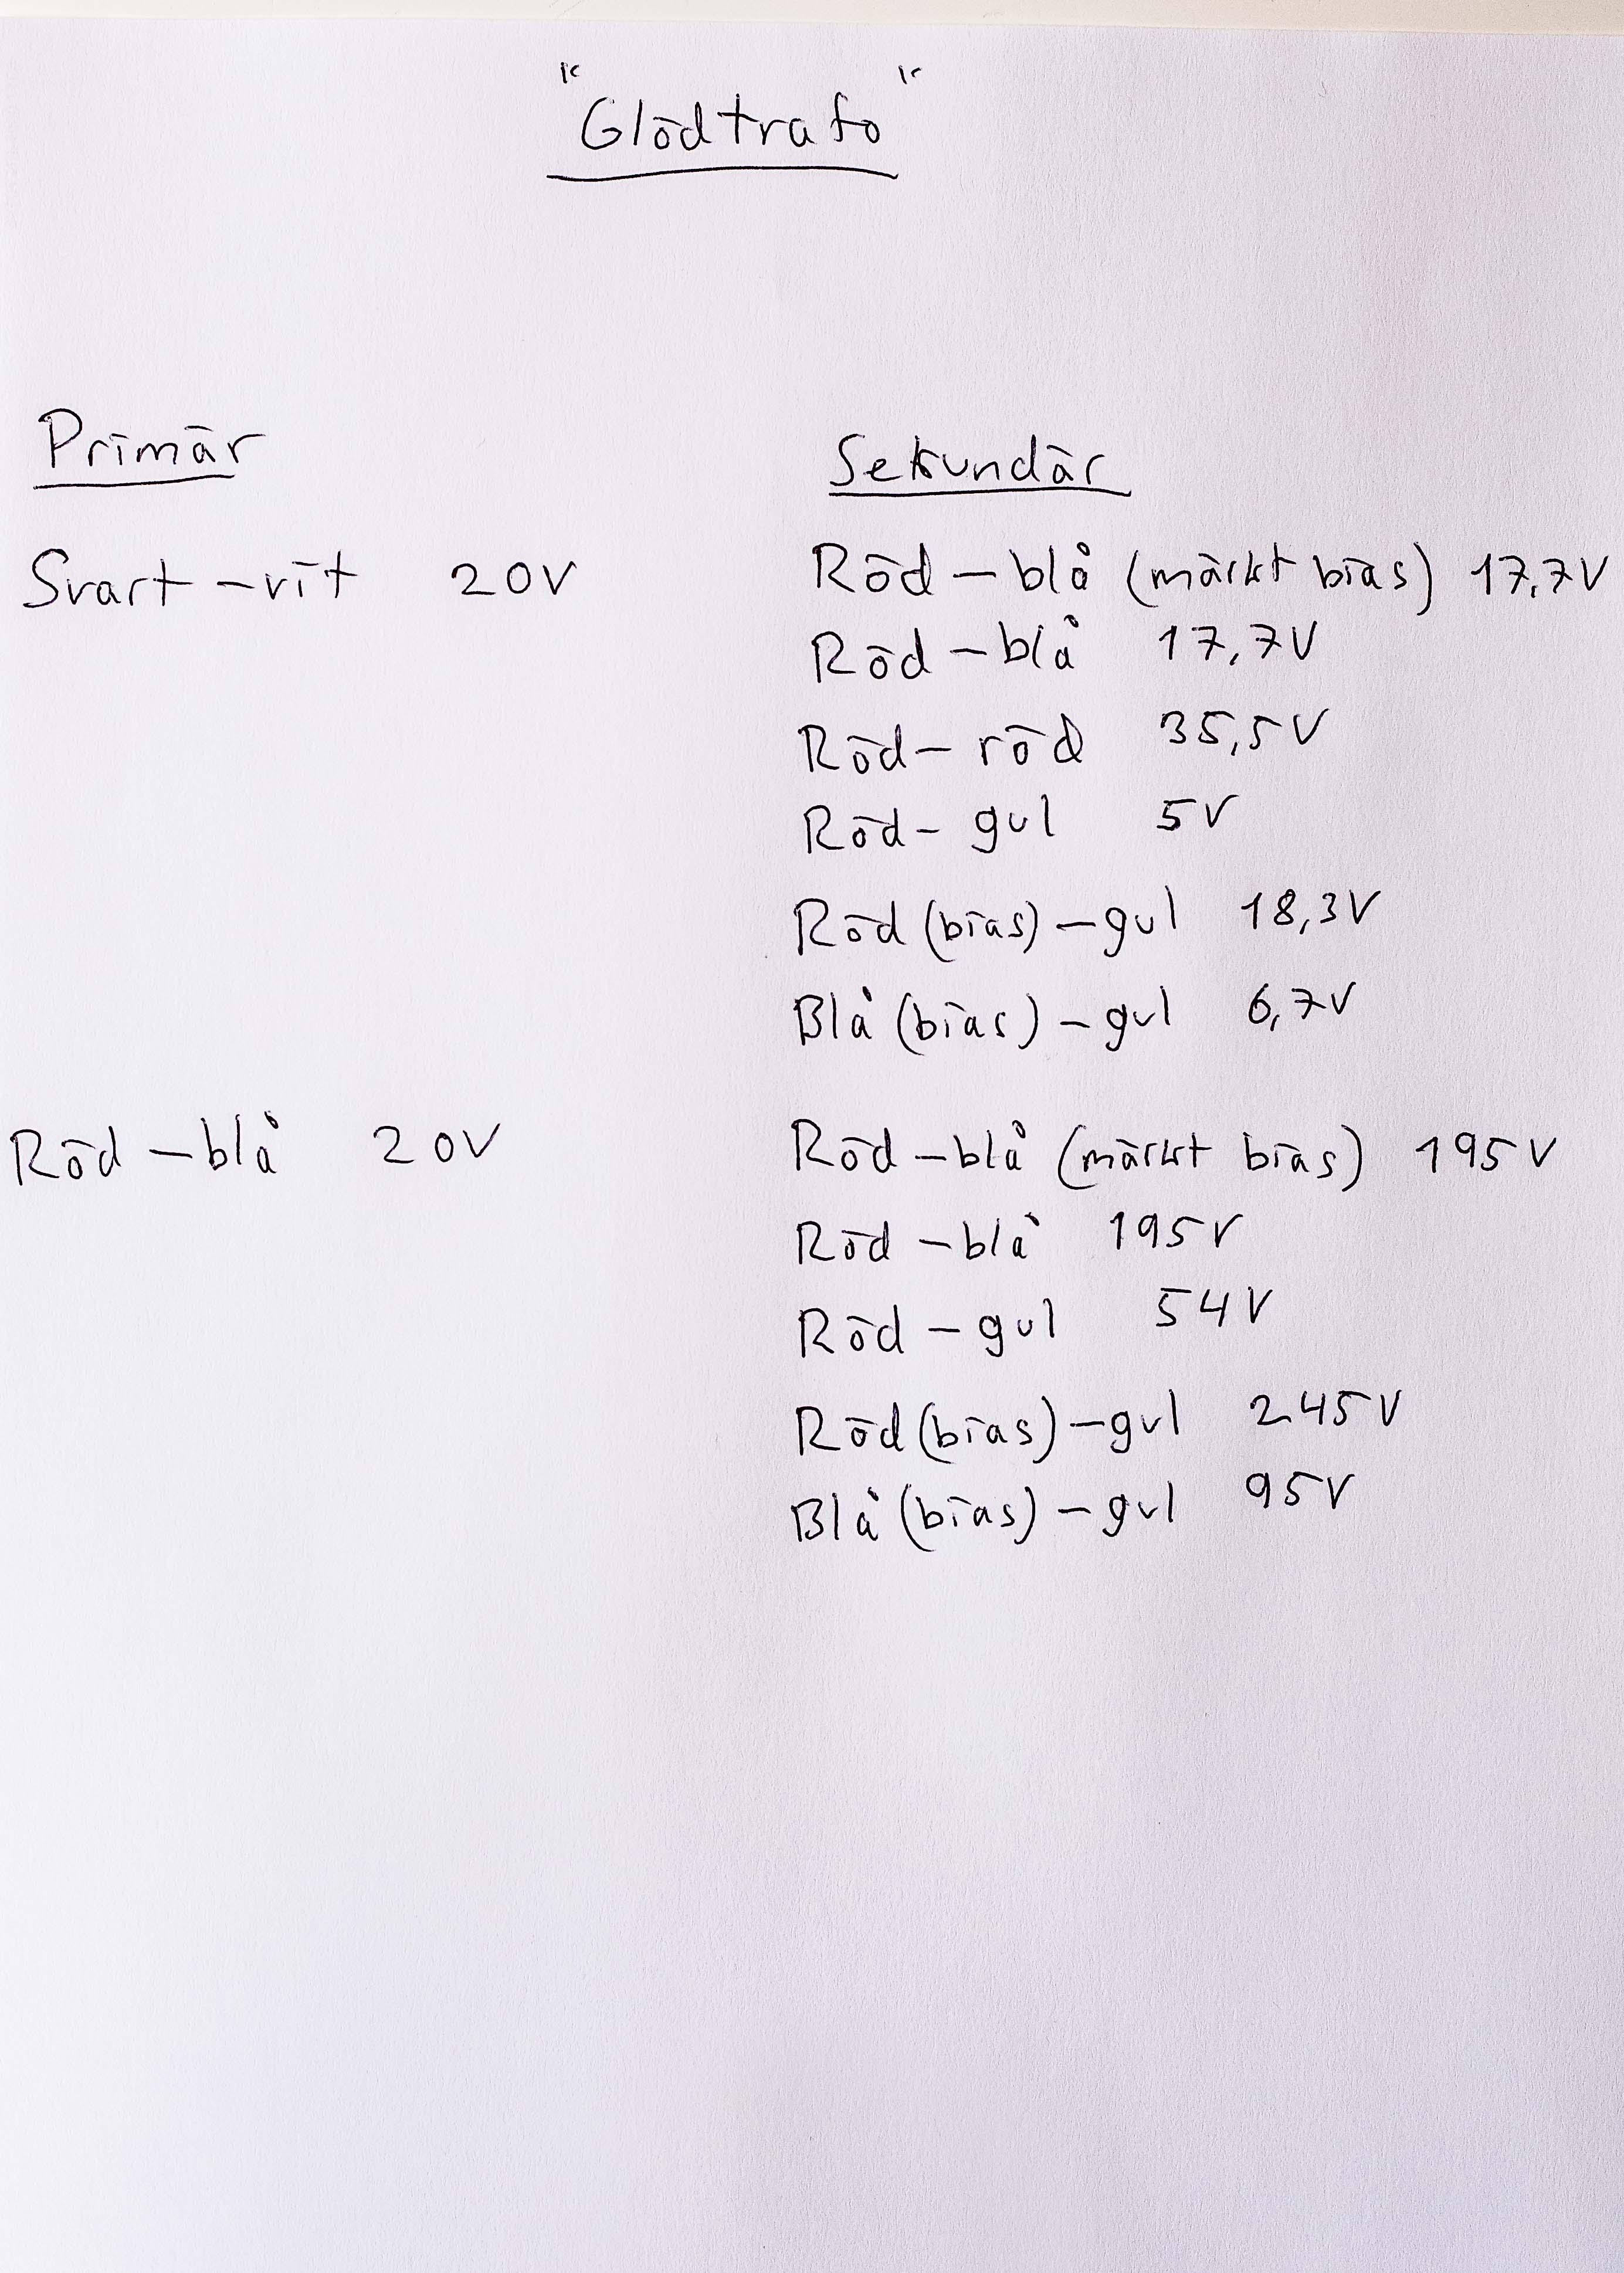 "Glödtrafo"
Primär Sekundär
Svart-vit 20V Röd-blå (märkt bias) 17,7V
Röd-blå 17,7V
Röd-röd 35,5V
Röd-gul 5V
Röd (bias)-gul 18,3V
Blå (bias)-gul 6,7V
Röd-blå 20V Röd-blå (märkt bias) 195V
Röd-blå 195V
Röd-gul 54V
Röd (bias)-gul 245V
Blå (bias)-gul 95V